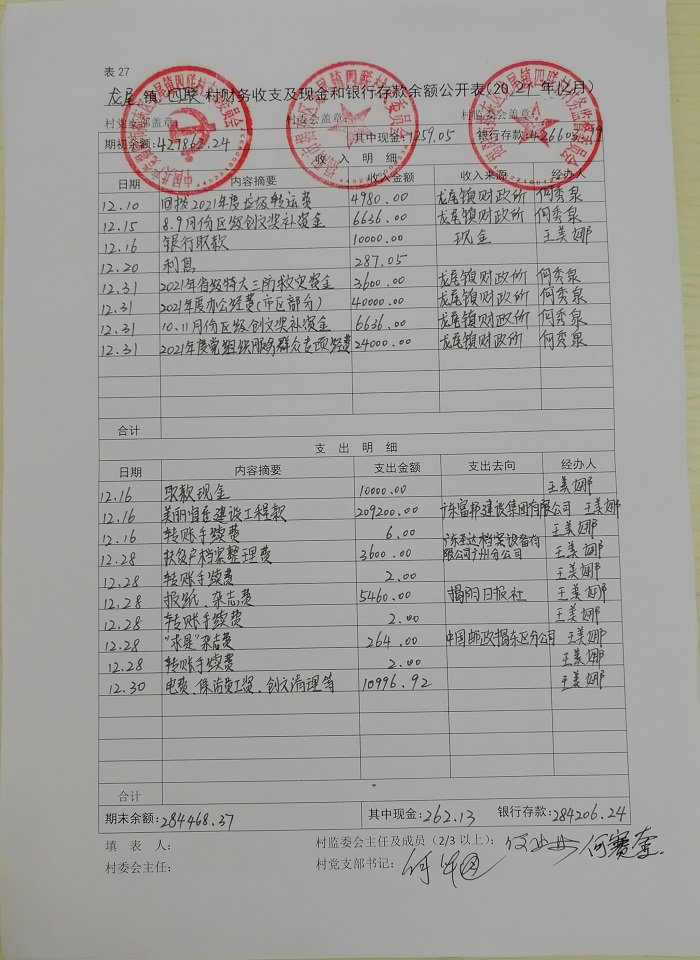 表 27
龙尾 镇 四联 村财务收支及现金和银行存款余额公开表(2021年12月)
村党支部盖章: 村委会盖章:
期初余额:427862.24 其中现金:1259.05 银行存款:426603.19
收 入 明 细
日期 内容摘要 收入金额 收入来源 经办人
12.10 回拨2021年度垃圾转运费 4980.00 龙尾镇财政所 何秀泉
12.15 8.9月份区级创文奖补资金 6636.00 龙尾镇财政所 何秀泉
12.16 银行取款 10000.00 现金 王美娜
12.20 利息 287.05
12.31 2021年省级特大三防救灾资金 3600.00 龙尾镇财政所 何秀泉
12.31 2021年度办公经费(市区部分) 40000.00 龙尾镇财政所 何秀泉
12.31 10.11月份区级创文奖补资金 6636.00 龙尾镇财政所 何秀泉
12.31 2021年度党组织服务群众专项经费 24000.00 龙尾镇财政所 何秀泉
合计
支 出 明 细
日期 内容摘要 支出金额 支出去向 经办人
12.16 取款现金 10000.00 王美娜
12.16 美丽宜居建设工程款 209200.00 广东富邦建设集团有限公司 王美娜
12.16 转账手续费 6.00 王美娜
12.28 扶贫户档案整理费 3600.00 广东圣达档案设备有限公司广州分公司 王美娜
12.28 转账手续费 2.00 王美娜
12.28 报纸、杂志费 5460.00 揭阳日报社 王美娜
12.28 转账手续费 2.00 王美娜
12.28 "求是"杂志费 264.00 中国邮政揭东区分公司 王美娜
12.28 转账手续费 2.00 王美娜
12.30 电费、保洁员工资、创文清理等 10996.92 王美娜
合计
期末余额:284468.37 其中现金:262.13 银行存款:284206.24
填 表 人: 村监委会主任及成员(2/3以上): 何赛奎
村委会主任: 村党支部书记: